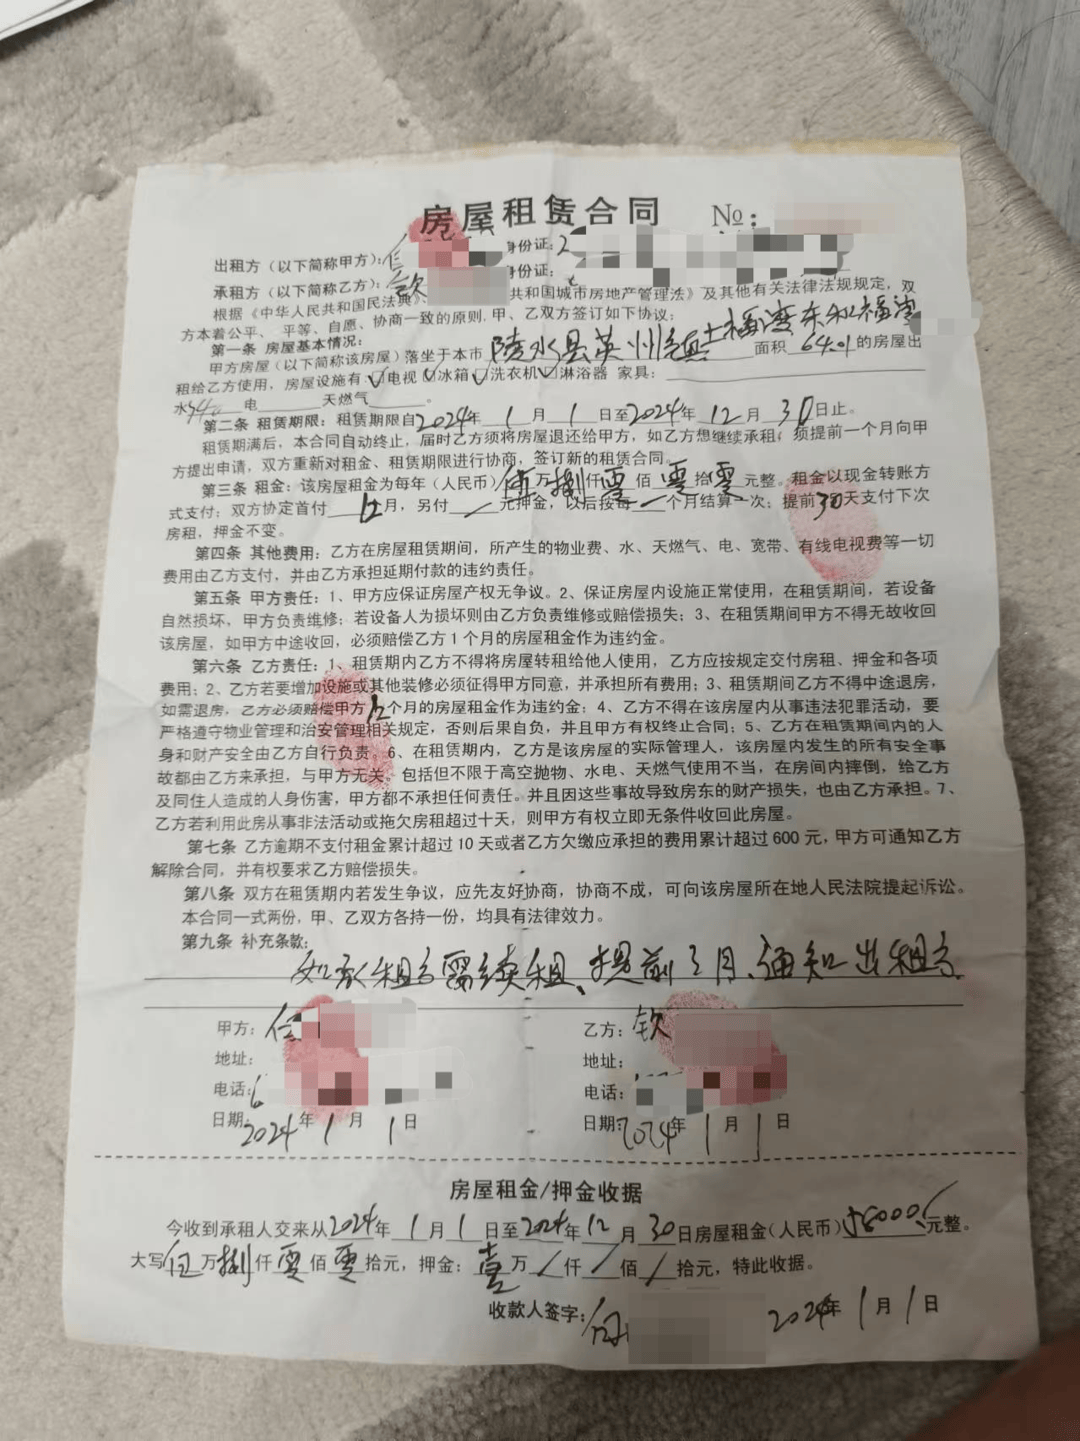 房屋租赁合同 №:
出租方（以下简称甲方）：任 身份证：2
承租方（以下简称乙方）：钦 身份证：
根据《中华人民共和国民法典》 共和国城市房地产管理法》及其他有关法律法规规定，双
方本着公平、平等、自愿、协商一致的原则.甲、乙双方签订如下协议：
第一条 房屋基本情况：
甲方房屋（以下简称该房屋）落坐于本市 陵水县英州镇土福湾 面积 64.01 的房屋出
租给乙方使用，房屋设施有：☑电视☑冰箱☑洗衣机☑淋浴器 家具：
水 电 天燃气 。
第二条 租赁期限：租赁期限自2024年 1 月 1 日至2024年 12 月 30日止。
租赁期满后，本合同自动终止，届时乙方须将房屋退还给甲方，如乙方想继续承租，须提前一个月向甲
方提出申请，双方重新对租金、租赁期限进行协商，签订新的租赁合同。
第三条 租金：该房屋租金为每年（人民币）伍万捌仟零佰零拾零元整。租金以现金转账方
式支付；双方协定首付 月，另付 / 元押金，以后按每 个月结算一次；提前30天支付下次
房租，押金不变。
第四条 其他费用：乙方在房屋租赁期间，所产生的物业费、水、天燃气、电、宽带、有线电视费等一切
费用由乙方支付，并由乙方承担延期付款的违约责任。
第五条 甲方责任：1、甲方应保证房屋产权无争议。2、保证房屋内设施正常使用，在租赁期间，若设备
自然损坏，甲方负责维修；若设备人为损坏则由乙方负责维修或赔偿损失；3、在租赁期间甲方不得无故收回
该房屋，如甲方中途收回，必须赔偿乙方1个月的房屋租金作为违约金。
第六条 乙方责任：1、租赁期内乙方不得将房屋转租给他人使用，乙方应按规定交付房租、押金和各项
费用；2、乙方若要增加设施或其他装修必须征得甲方同意，并承担所有费用；3、租赁期间乙方不得中途退房，
如需退房，乙方必须赔偿甲方 个月的房屋租金作为违约金；4、乙方不得在该房屋内从事违法犯罪活动，要
严格遵守物业管理和治安管理相关规定，否则后果自负，并且甲方有权终止合同；5、乙方在租赁期间内的人
身和财产安全由乙方自行负责。6、在租赁期内，乙方是该房屋的实际管理人，该房屋内发生的所有安全事
故都由乙方来承担，与甲方无关。包括但不限于高空抛物、水电、天燃气使用不当，在房间内摔倒，给乙方
及同住人造成的人身伤害，甲方都不承担任何责任。并且因这些事故导致房东的财产损失，也由乙方承担。7、
乙方若利用此房从事非法活动或拖欠房租超过十天，则甲方有权立即无条件收回此房屋。
第七条 乙方逾期不支付租金累计超过10天或者乙方欠缴应承担的费用累计超过600元，甲方可通知乙方
解除合同，并有权要求乙方赔偿损失。
第八条 双方在租赁期内若发生争议，应先友好协商，协商不成，可向该房屋所在地人民法院提起诉讼。
本合同一式两份，甲、乙双方各持一份，均具有法律效力。
第九条 补充条款：
如承租方需续租、提前3月、通知出租方.
甲方：任 乙方：钦
地址： 地址：
电话： 电话：
日期：2024年 1 月 1 日 日期：2024年 1 月 1 日
房屋租金/押金收据
今收到承租人交来从2024年 1 月 1 日至2024年12 月 30日房屋租金（人民币）58000元整。
大写伍万捌仟零佰零拾元，押金：壹万/仟/佰/拾元，特此收据。
收款人签字： 2024年 1 月 1 日